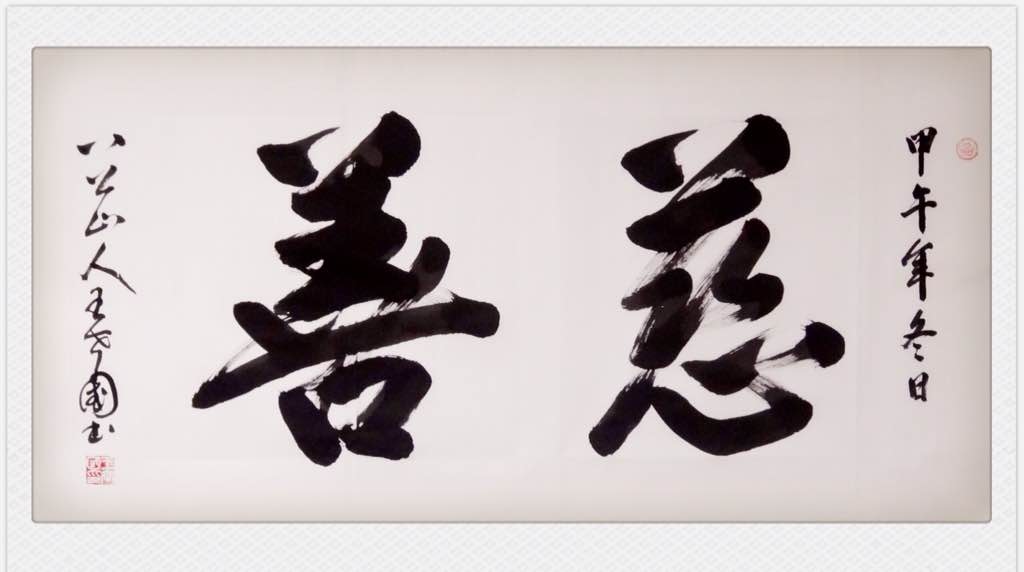 甲午年冬日
慈善
八公山人王國书